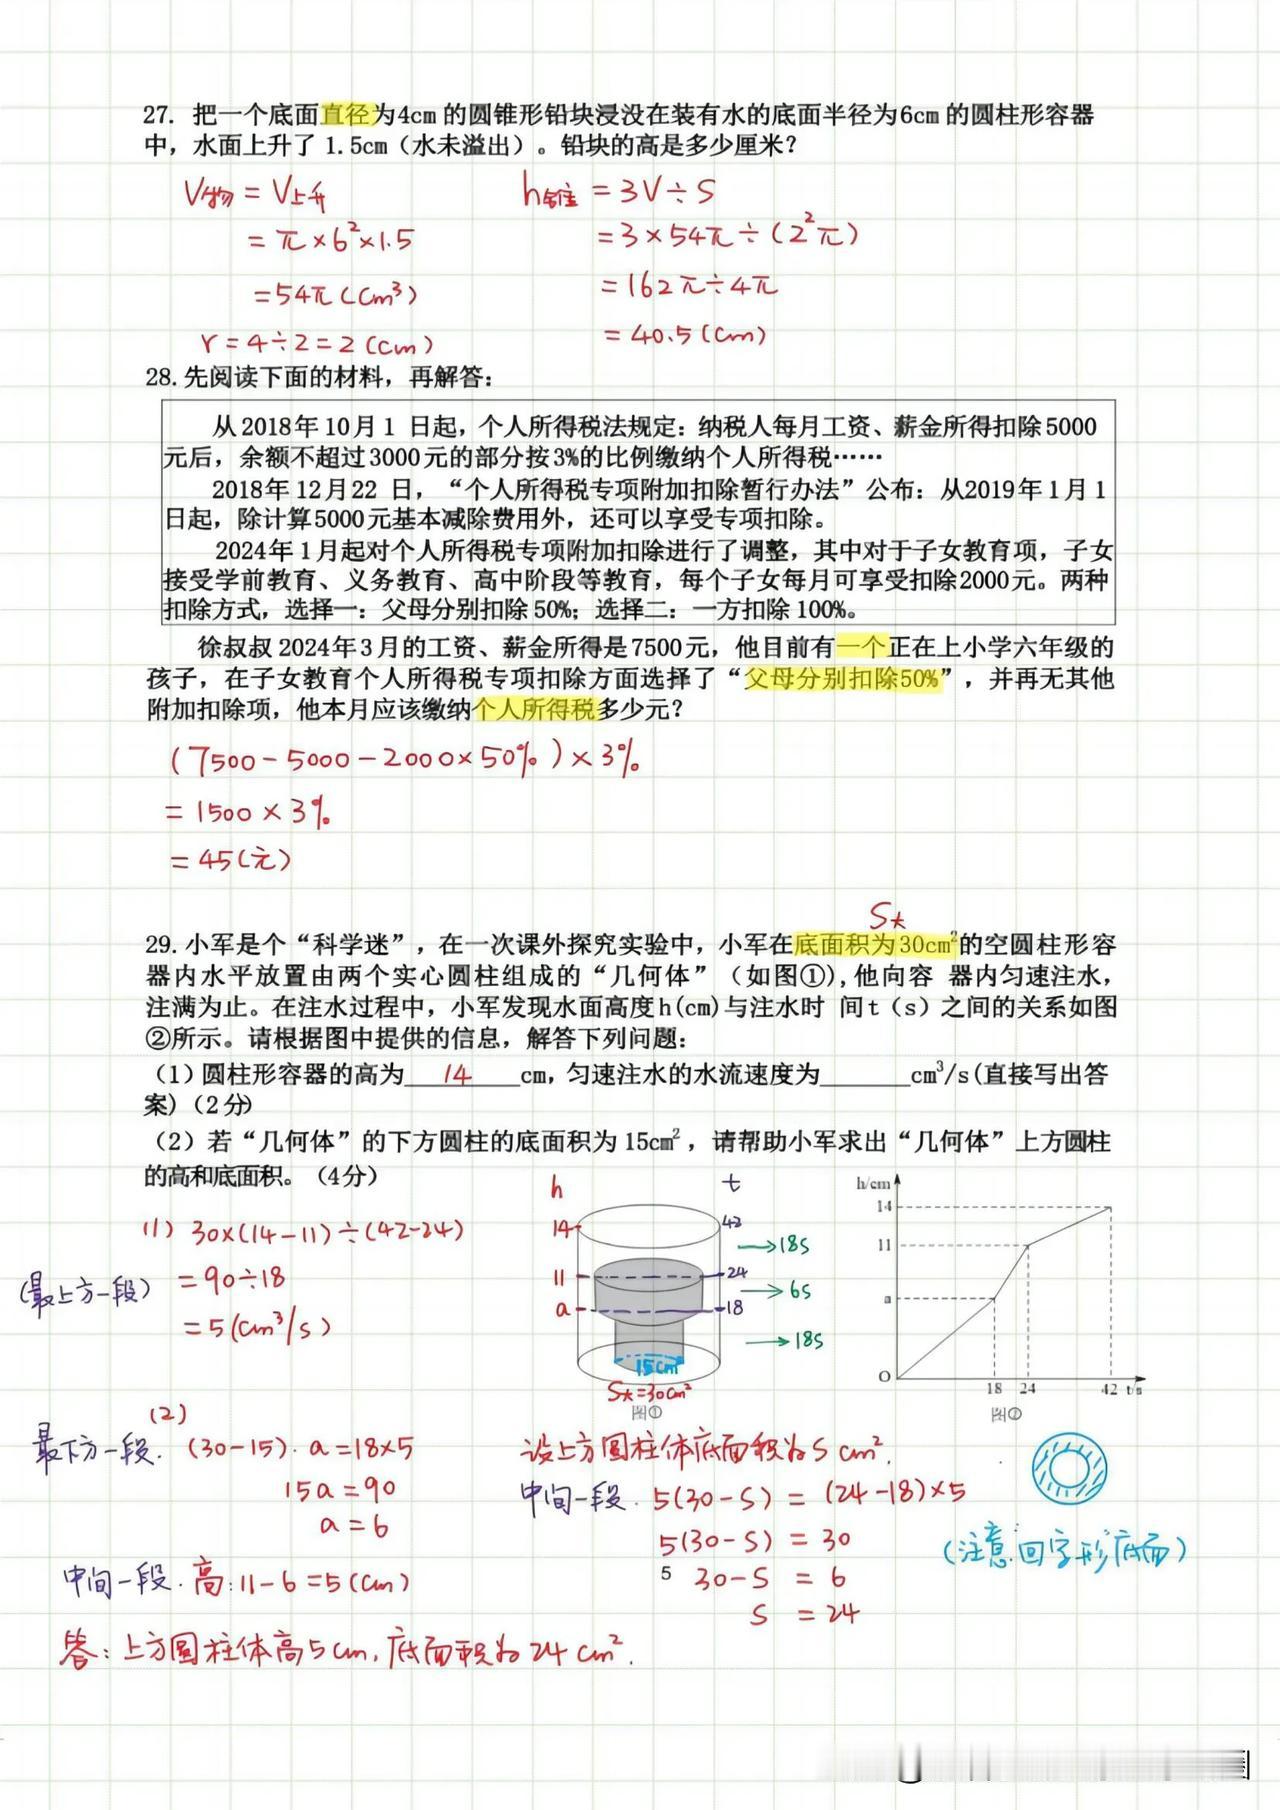 27. 把一个底面直径为4cm的圆锥形铅块浸没在装有水的底面半径为6cm的圆柱形容器
中，水面上升了 1.5cm（水未溢出）。铅块的高是多少厘米？
V物 = V上升
= π×6²×1.5
= 54π (cm³)
r = 4÷2 = 2 (cm)
h锥 = 3V÷S
= 3×54π÷(2²π)
= 162π÷4π
= 40.5 (cm)
28. 先阅读下面的材料，再解答：
从2018年10月1 日起，个人所得税法规定：纳税人每月工资、薪金所得扣除5000
元后，余额不超过3000元的部分按3%的比例缴纳个人所得税……
2018年12月22 日，“个人所得税专项附加扣除暂行办法”公布：从2019年1月1
日起，除计算5000元基本减除费用外，还可以享受专项扣除。
2024年1月起对个人所得税专项附加扣除进行了调整，其中对于子女教育项，子女
接受学前教育、义务教育、高中阶段等教育，每个子女每月可享受扣除2000元。两种
扣除方式，选择一：父母分别扣除50%；选择二：一方扣除100%。
徐叔叔2024年3月的工资、薪金所得是7500元，他目前有一个正在上小学六年级的
孩子，在子女教育个人所得税专项扣除方面选择了“父母分别扣除50%”，并再无其他
附加扣除项，他本月应该缴纳个人所得税多少元？
(7500-5000-2000×50%)×3%
= 1500×3%
= 45(元)
S大
29. 小军是个“科学迷”，在一次课外探究实验中，小军在底面积为30cm²的空圆柱形容
器内水平放置由两个实心圆柱组成的“几何体”（如图①），他向容 器内匀速注水，
注满为止。在注水过程中，小军发现水面高度h(cm)与注水时 间t（s）之间的关系如图
②所示。请根据图中提供的信息，解答下列问题：
（1）圆柱形容器的高为 14 cm，匀速注水的水流速度为 cm³/s(直接写出答
案)（2分）
（2）若“几何体”的下方圆柱的底面积为15cm²，请帮助小军求出“几何体”上方圆柱
的高和底面积。（4分）
(1) 30×(14-11)÷(42-24)
(最上方一段) = 90÷18
= 5(cm³/s)
h t
14 42
→18s
11 24
→6s
a 18
→18s
15cm²
S大=30cm²
图①
h/cm
14
11
a
O
18 24 42 t/s
图②
(2)
最下方一段. (30-15)·a = 18×5
15a = 90
a = 6
中间一段.高:11-6=5(cm)
设上方圆柱体底面积为S cm².
中间一段. 5(30-S) = (24-18)×5
5(30-S) = 30
30-S = 6
S = 24
(注意:回字形底面)
5
答:上方圆柱体高5cm,底面积为24cm².